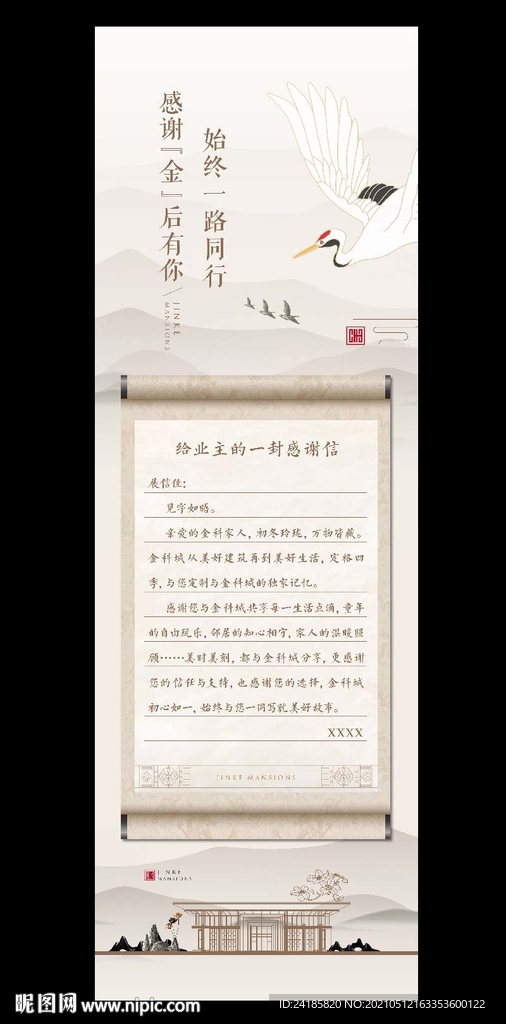 感谢『金』后有你
始终一路同行
JINKE
MANSIONS
给业主的一封感谢信
展信佳：
见字如晤。
亲爱的金科家人，初冬玲珑，万物皆藏。
金科城从美好建筑再到美好生活，定格四
季，与您定制与金科城的独家记忆。
感谢您与金科城共享每一生活点滴，童年
的自由玩乐，邻居的知心相守，家人的温暖照
顾……美时美刻，都与金科城分享，更感谢
您的信任与支持，也感谢您的选择，金科城
初心如一，始终与您一同写就美好故事。
XXXX
JINKE MANSIONS
JINKE
MANSIONS
昵图网 www.nipic.com
ID:24185820 NO:20210512163353600122